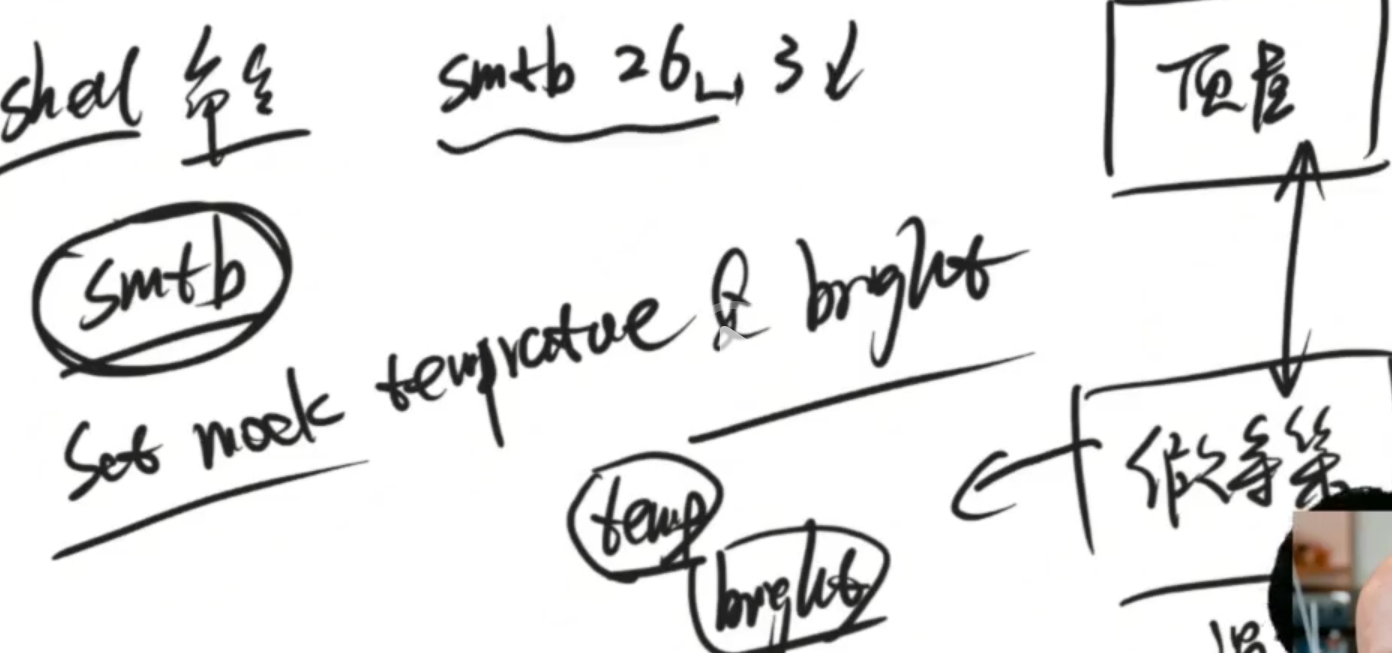 shell 命令
smtb 26␣3↓
顶层
smtb
Set mock temprature & bright
temp
bright
做等